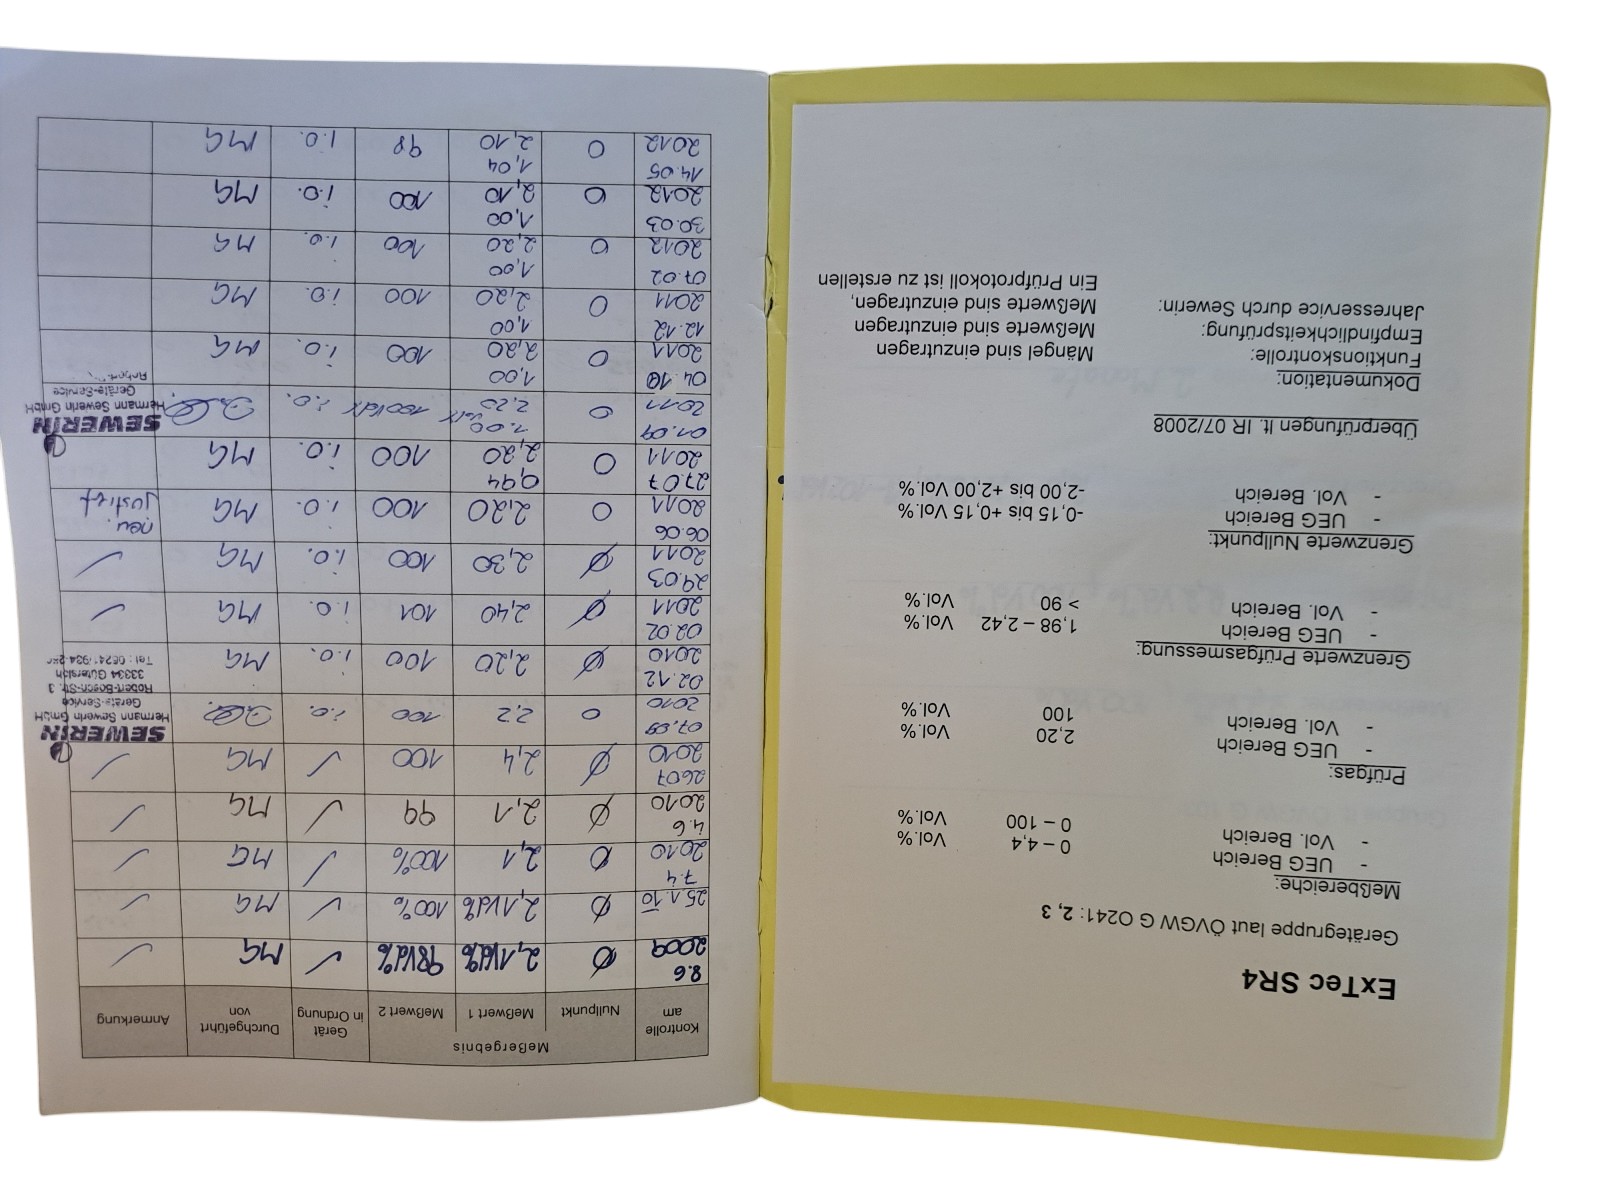 ExTec SR4
Gerätegruppe laut ÖVGW G O241: 2, 3
Meßbereiche:
- UEG Bereich 0 – 4,4 Vol.%
- Vol. Bereich 0 – 100 Vol.%
Prüfgas:
- UEG Bereich 2,20 Vol.%
- Vol. Bereich 100 Vol.%
Grenzwerte Prüfgasmessung:
- UEG Bereich 1,98 – 2,42 Vol.%
- Vol. Bereich > 90 Vol.%
Grenzwerte Nullpunkt:
- UEG Bereich -0,15 bis +0,15 Vol.%
- Vol. Bereich -2,00 bis +2,00 Vol.%
Überprüfungen lt. IR 07/2008
Dokumentation:
Funktionskontrolle: Mängel sind einzutragen
Empfindlichkeitsprüfung: Meßwerte sind einzutragen
Jahresservice durch Sewerin: Meßwerte sind einzutragen,
Ein Prüfprotokoll ist zu erstellen
Kontrolle am Meßergebnis Gerät in Ordnung Durchgeführt von Anmerkung
Nullpunkt Meßwert 1 Meßwert 2
8.6 2009 Ø 2,1Vol% 98Vol% ✓ MG ✓
25.1.10 Ø 2,1Vol% 100% ✓ MG ✓
7.4 2010 Ø 2,1 100% ✓ MG ✓
4.6 2010 Ø 2,1 99 ✓ MG ✓
26.07 2010 Ø 2,4 100 ✓ MG ✓
07.09 2010 0 2,2 100 i.O.
SEWERIN
Hermann Sewerin GmbH
Geräte-Service
Robert-Bosch-Str. 3
33334 Gütersloh
Tel.: 05241/934-2
02.12 2010 Ø 2,20 100 i.O. MG
02.02 2011 Ø 2,40 101 i.O. MG ✓
29.03 2011 Ø 2,30 100 i.O. MG ✓
06.06 2011 0 2,20 100 i.O. MG neu. justiert
27.07 2011 0 0,94 2,20 100 i.O. MG
01.09 2011 0 1.00 2,20 100Vol% i.O.
SEWERIN
Hermann Sewerin GmbH
Geräte-Service
04.10 2011 0 1,00 2,20 100 i.O. MG
12.12 2011 0 1,00 2,20 100 i.O. MG
07.02 2012 0 1,00 2,20 100 i.O. MG
30.03 2012 0 1,00 2,10 100 i.O. MG
14.05 2012 0 1,04 2,10 98 i.O. MG